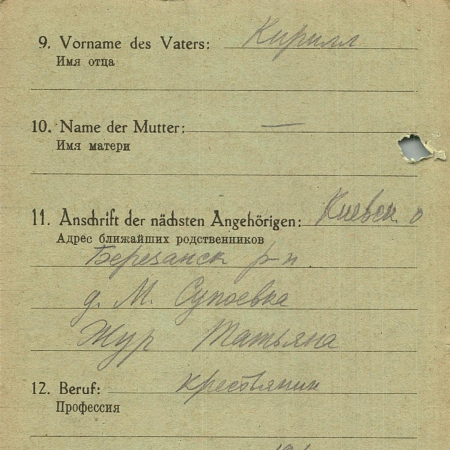 9. Vorname des Vaters: Кирилл
Имя отца
10. Name der Mutter: —
Имя матери
11. Anschrift der nächsten Angehörigen: Киевск о
Адрес ближайших родственников
Березанск р-н.
д. М. Супоевка
Жур Татьяна
12. Beruf: крестьянин
Профессия